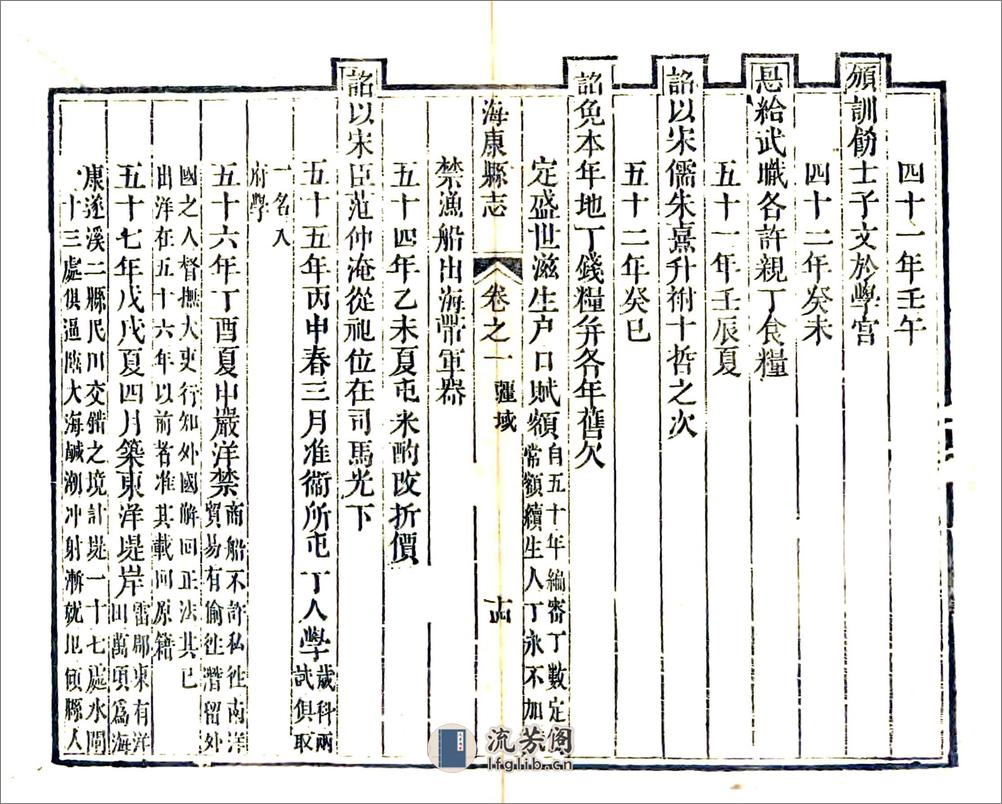 四十一年壬午
頒訓飭士子文於學宮
四十二年癸未
恩給武職各許親丁食糧
五十一年壬辰夏
詔以宋儒朱熹升祔十哲之次
五十二年癸巳
詔免本年地丁錢糧弁各年舊欠
定盛世滋生户口賦額自五十年編審丁數定
常額續生人丁永不加
海康縣志 卷之一 疆域 十四
禁漁船出海帶軍器
五十四年乙未夏屯米酌改折價
詔以宋臣范仲淹從祀位在司馬光下
五十五年丙申春三月准衞所屯丁人學歲科兩
試俱取
一名入
府學
五十六年丁酉夏申嚴洋禁商船不許私徃南洋
貿易有偷徃潛留外
國之人督撫大吏行知外國解回正法其已
出洋在五十六年以前者准其載回原籍
五十七年戊戌夏四月築東洋堤岸雷郡東有洋
田萬頃為海
康遂溪二縣民田交錯之境計堤一十七處水閘
十三處俱逼臨大海鹹潮冲射漸就圮傾縣人
流芳閣
lfglib.cn